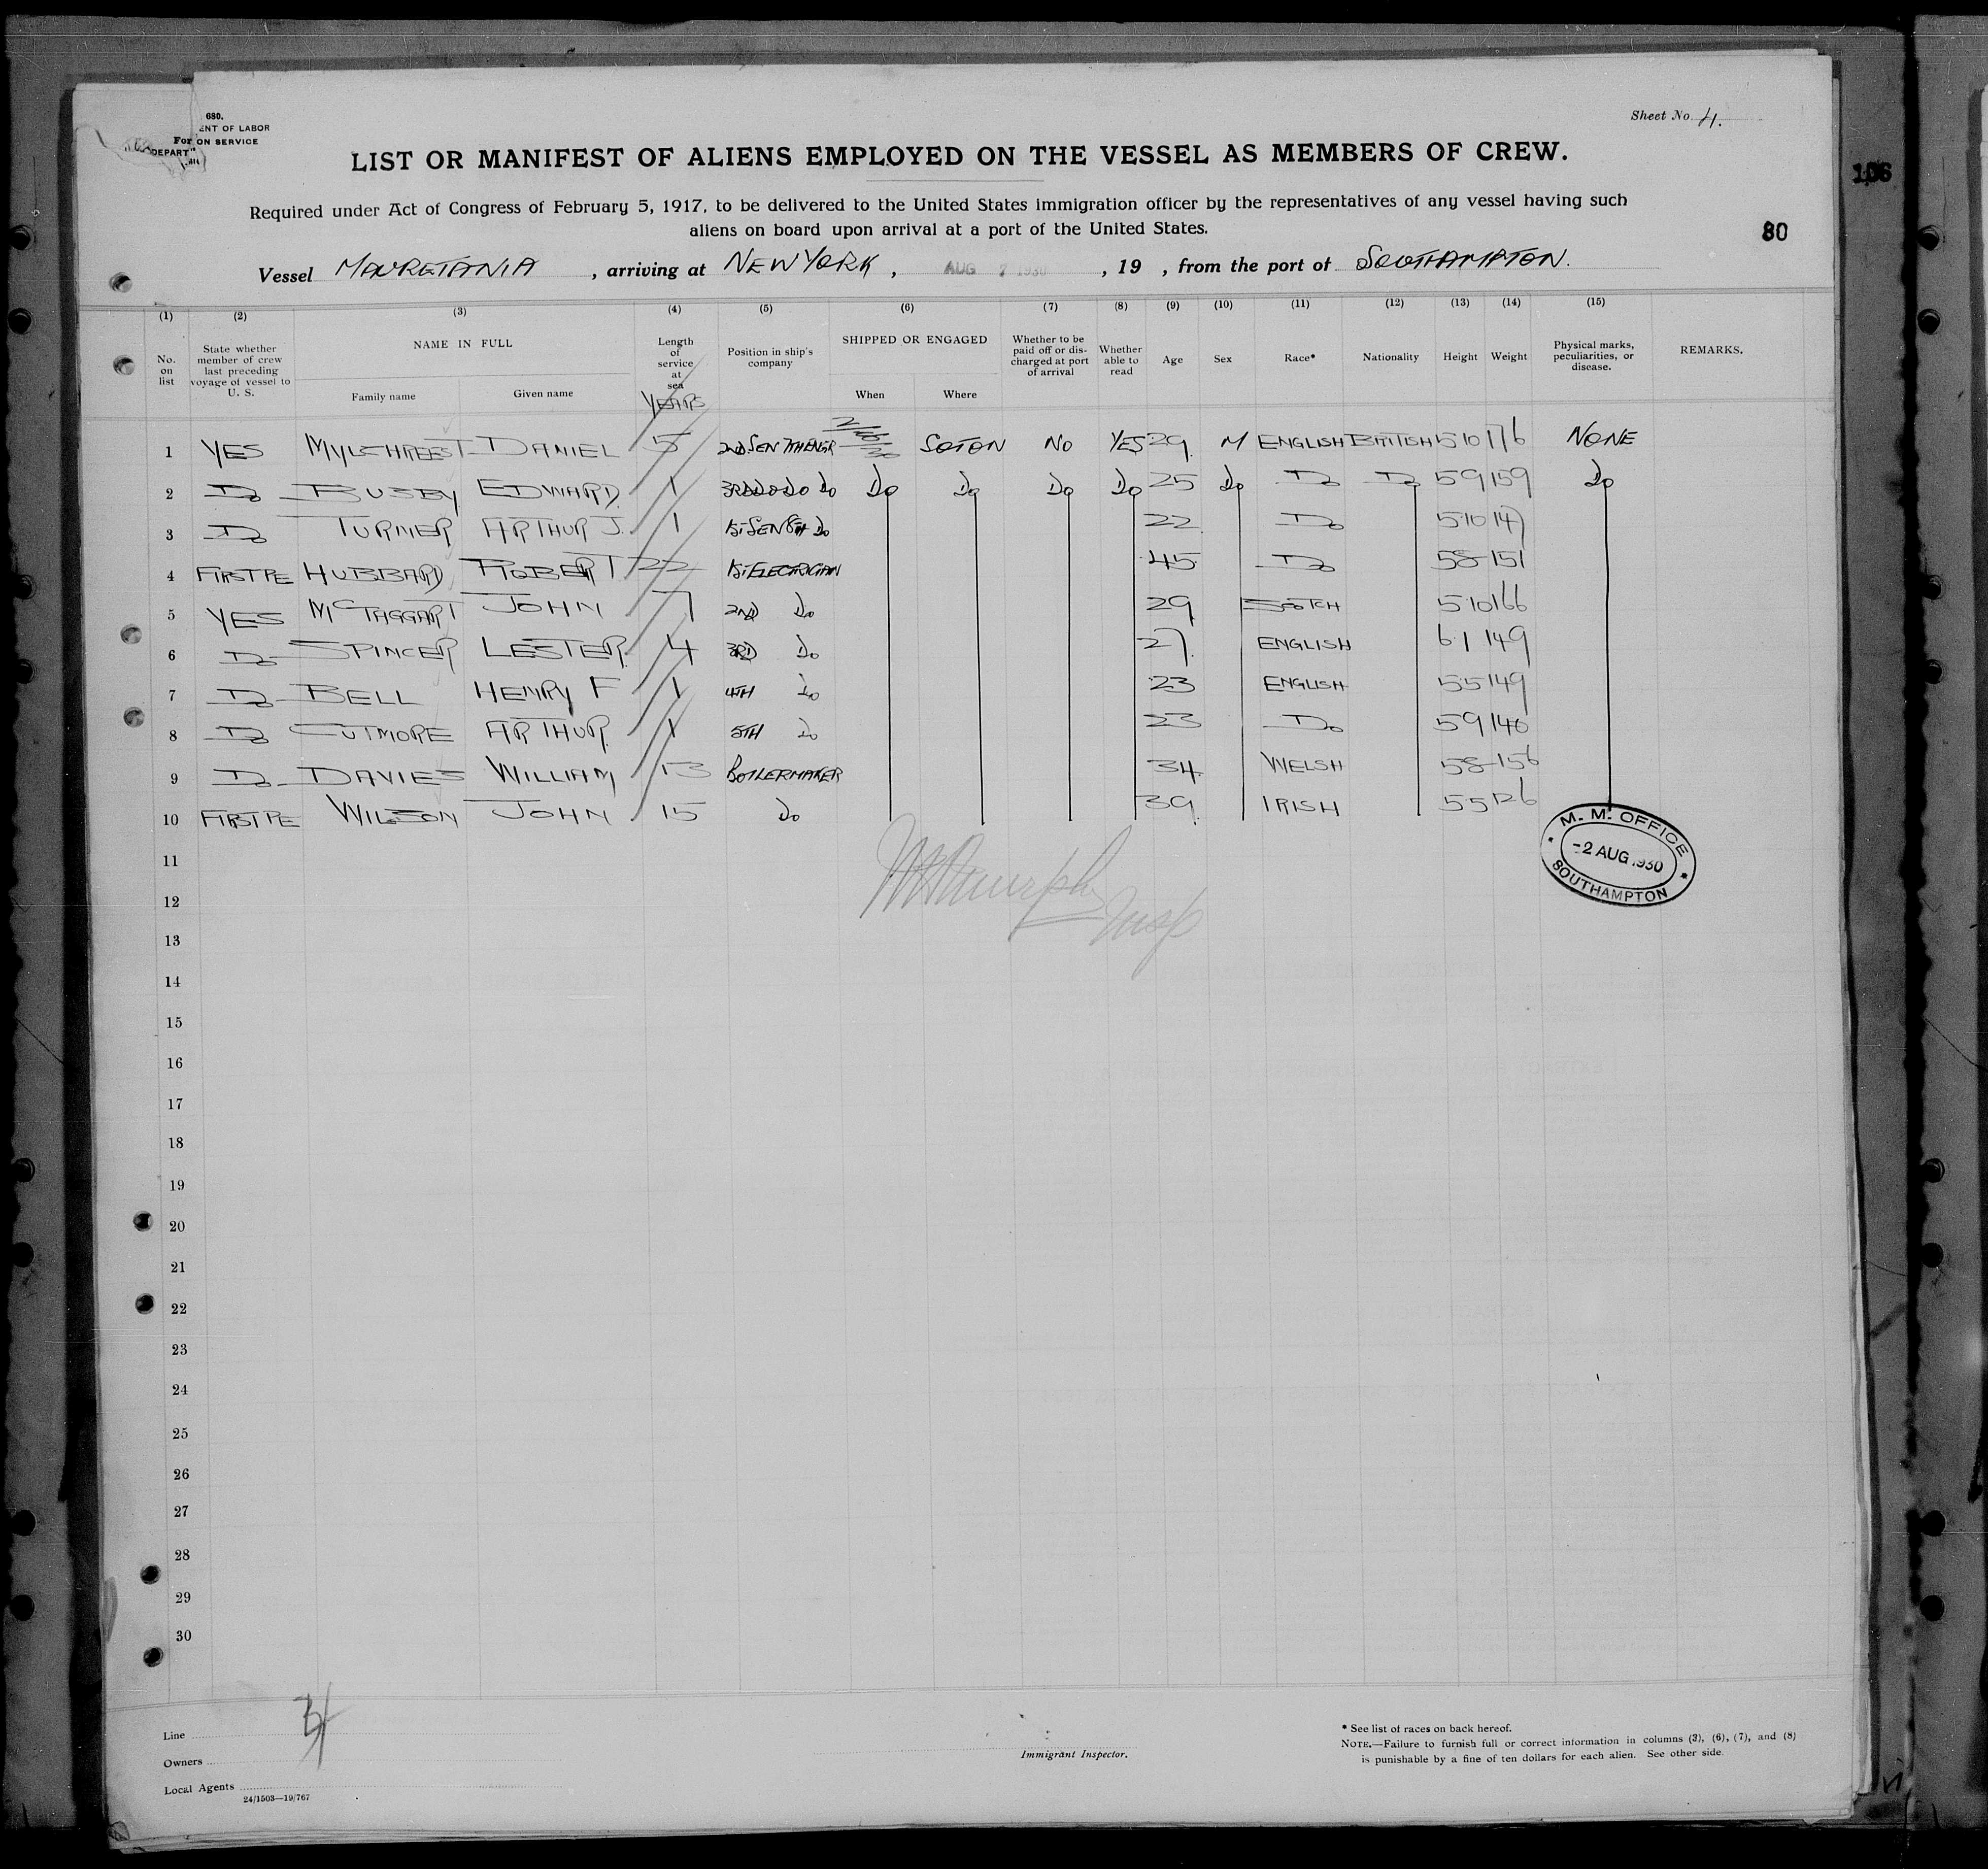 680.
ENT OF LABOR
For ON SERVICE
DEPART
Sheet No. 4.
LIST OR MANIFEST OF ALIENS EMPLOYED ON THE VESSEL AS MEMBERS OF CREW.
106
Required under Act of Congress of February 5, 1917, to be delivered to the United States immigration officer by the representatives of any vessel having such
aliens on board upon arrival at a port of the United States.
80
Vessel MAURETANIA , arriving at NEW YORK , AUG 7 1930 , 19 , from the port of SOUTHAMPTON.
(1) (2) (3) (4) (5) (6) (7) (8) (9) (10) (11) (12) (13) (14) (15)
No. on list State whether member of crew last preceding voyage of vessel to U. S. NAME IN FULL Family name Given name Length of service at sea YEARS Position in ship's company SHIPPED OR ENGAGED When Where Whether to be paid off or discharged at port of arrival Whether able to read Age Sex Race* Nationality Height Weight Physical marks, peculiarities, or disease. REMARKS.
1 YES MYLCHREEST DANIEL 5 2ND SEN 7TH ENGR SOTON NO YES 29 M ENGLISH BRITISH 5 10 176 NONE
2 Do BUSBY EDWARD 1 3RD Do Do Do Do Do Do Do 25 Do Do Do 5 9 159 Do
3 Do TURNER ARTHUR J. 1 1st SEN 8TH Do 22 Do 5 10 147
4 FIRST PE HUBBARD ROBERT 22 1st ELECTRICIAN 45 Do 5 8 151
5 YES McTAGGART JOHN 7 2ND Do 29 SCOTCH 5 10 166
6 Do SPINCER LESTER 4 3RD Do 27 ENGLISH 6 1 149
7 Do BELL HENRY F 1 4TH Do 23 ENGLISH 5 5 149
8 Do CUTMORE ARTHUR 1 5TH Do 23 Do 5 9 140
9 Do DAVIES WILLIAM 13 BOILERMAKER 34 WELSH 5 8 156
10 FIRST PE WILSON JOHN 15 Do 39 IRISH 5 5 126
M. M. OFFICE
-2 AUG 1930
SOUTHAMPTON
Murphy
Insp
11
12
13
14
15
16
17
18
19
20
21
22
23
24
25
26
27
28
29
30
Line
Owners
Local Agents
24/1503—19/767
Immigrant Inspector.
* See list of races on back hereof.
NOTE.—Failure to furnish full or correct information in columns (3), (6), (7), and (8)
is punishable by a fine of ten dollars for each alien. See other side.